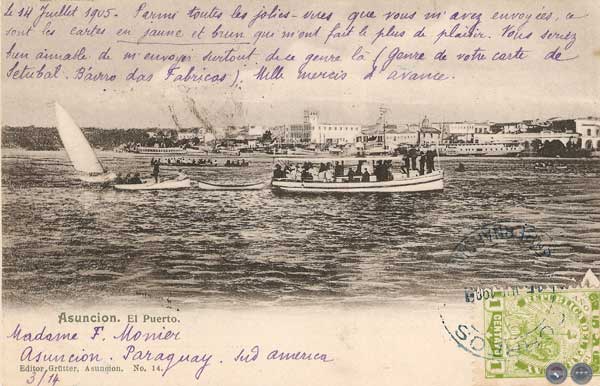 le 14 Juillet 1905. Parmi toutes les jolies vues que vous m'avez envoyées, ce
sont les cartes en jaune et brun qui m'ont fait le plus de plaisir. Vous seriez
bien aimable de m'envoyer surtout de ce genre là (genre de votre carte de
Setubal. Bairro das Fabricas), Mille mercis d'avance.
Asuncion. El Puerto.
Madame F. Monier
Asuncion. Paraguay. Sud america
Editor Grütter, Asuncion. No. 14.
3/14